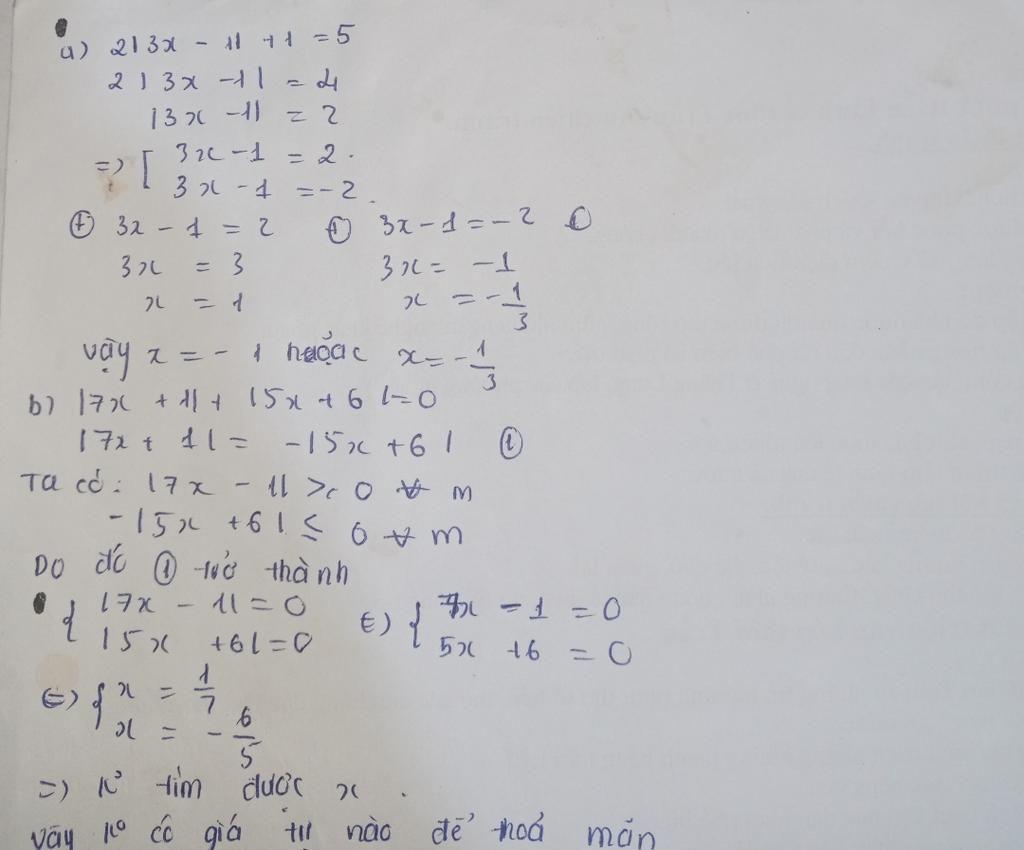 a) 2|3x - 1| + 1 = 5
2|3x - 1| = 4
|3x - 1| = 2
=> [ 3x - 1 = 2.
3x - 1 = -2.
⊕ 3x - 1 = 2 ⊕ 3x - 1 = -2
3x = 3 3x = -1
x = 1 x = -1/3
vậy x = - 1 hoặc x = -1/3
b) |7x + 1| + |5x + 6| = 0
|7x + 1| = -|5x + 6| ①
Ta có: |7x - 1| >, 0 ∀ m
-|5x + 6| ≤ 0 ∀ m
Do đó ① trở thành
{ |7x - 1| = 0 <=> { 7x - 1 = 0
|5x + 6| = 0 5x + 6 = 0
<=> { x = 1/7
x = -6/5
=> k° tìm được x .
vậy k° có giá trị nào để thoả mãn